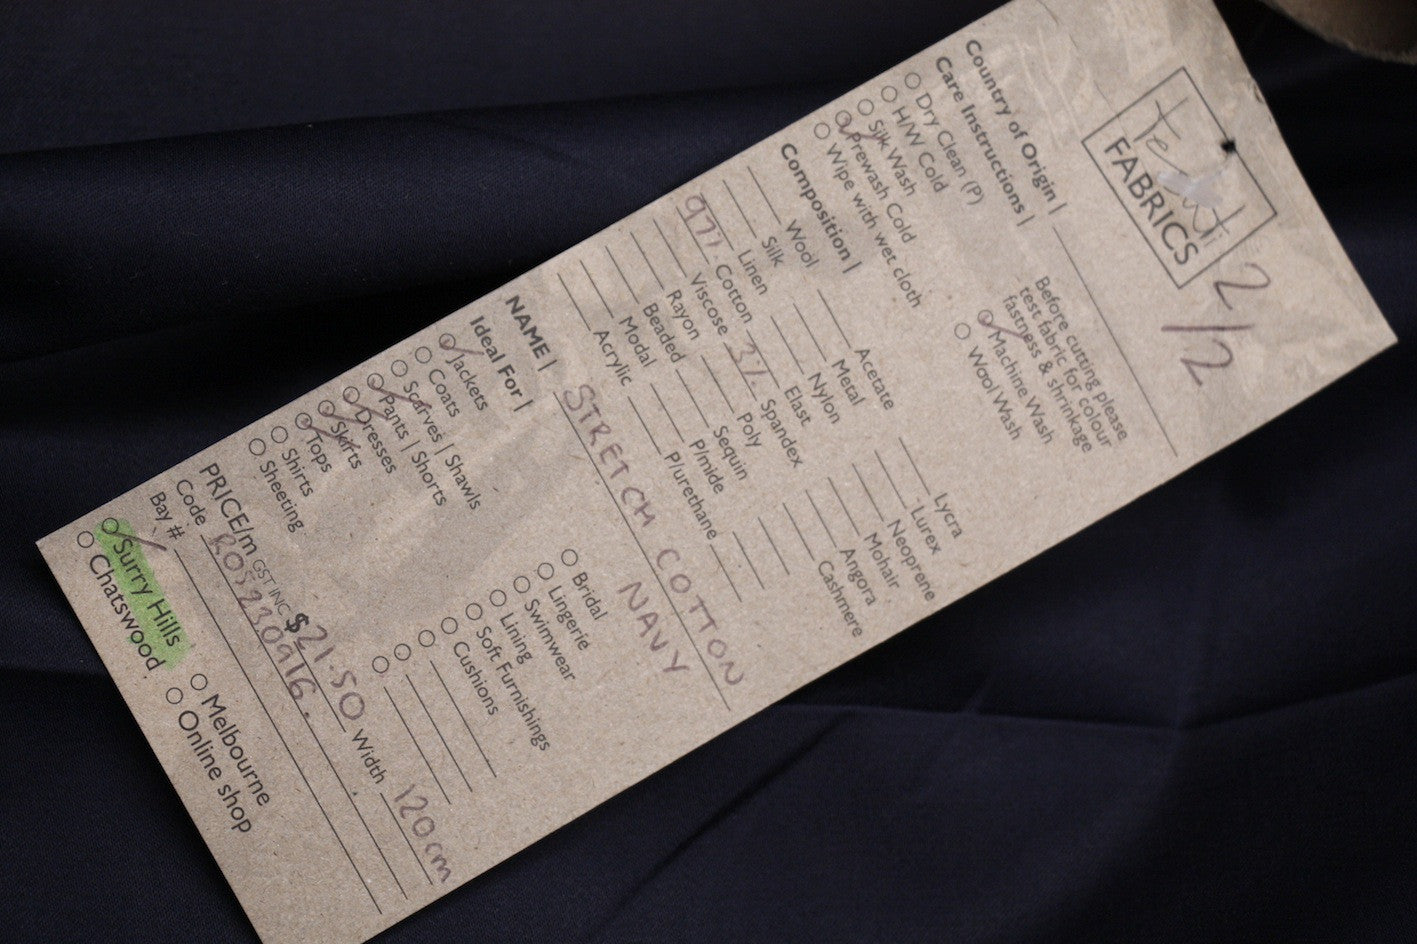 tessuti
FABRICS
2/2
Country of Origin |
Care Instructions |
Dry Clean (P)
H/W Cold
Silk Wash
Prewash Cold
Wipe with wet cloth
Before cutting please
test fabric for colour
fastness & shrinkage
Machine Wash
Wool Wash
Composition |
Wool
Silk
Linen
97% Cotton
Viscose
Rayon
Beaded
Modal
Acrylic
Acetate
Metal
Nylon
Elast
3% Spandex
Poly
Sequin
P/mide
P/urethane
Lycra
Lurex
Neoprene
Mohair
Angora
Cashmere
NAME | STRETCH COTTON
NAVY
Ideal For |
Jackets
Coats
Scarves | Shawls
Pants | Shorts
Dresses
Skirts
Tops
Shirts
Sheeting
Bridal
Lingerie
Swimwear
Lining
Soft Furnishings
Cushions
PRICE/m GST INC $21.50 Width 120cm
Code R05230916.
Bay #
Surry Hills
Chatswood
Melbourne
Online shop